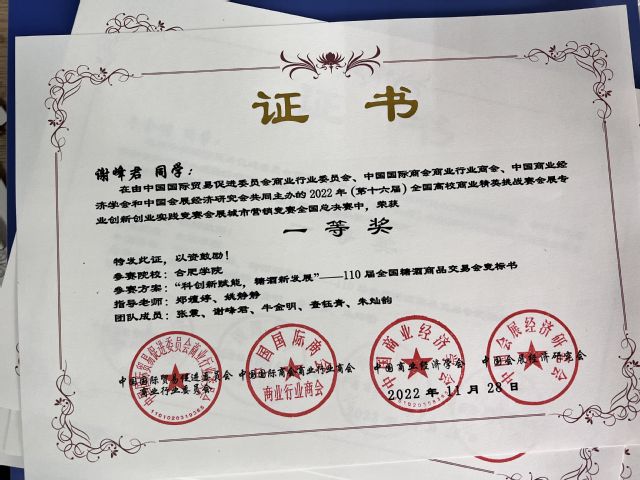 证 书
谢峰君 同学：
在由中国国际贸易促进委员会商业行业委员会、中国国际商会商业行业商会、中国商业经
济学会和中国会展经济研究会共同主办的 2022 年（第十六届）全国高校商业精英挑战赛会展专
业创新创业实践竞赛会展城市营销竞赛全国总决赛中，荣获
一 等 奖
特发此证，以资鼓励！
参赛院校：合肥学院
参赛方案：“科创新赋能，糖酒新发展”——110 届全国糖酒商品交易会竞标书
指导老师：郑煌婷、姚静静
团队成员：张震、谢峰君、牛金明、查钰青、朱灿韵
中国国际贸易促进委员会 中国国际商会商业行业商会 中国商业经济学会 中国会展经济研究会
商业行业委员会
商业行业商会
2022 年 11 月 28 日